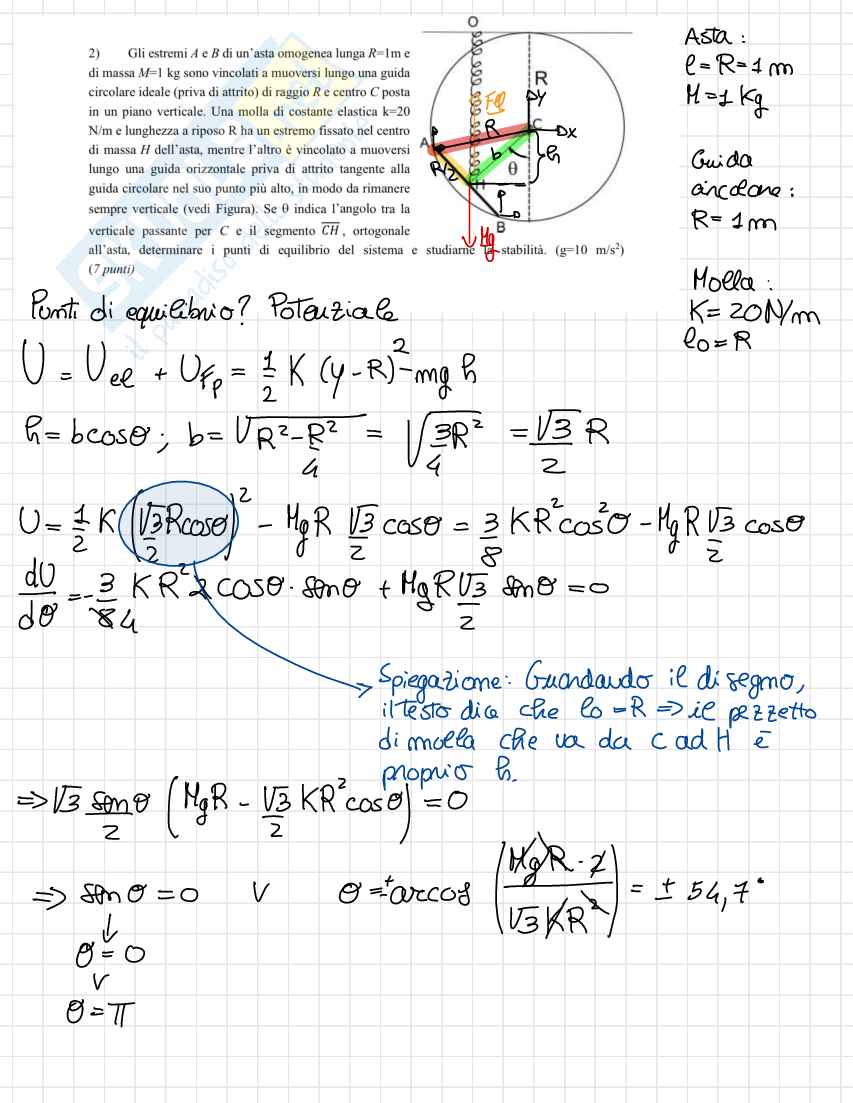 2) Gli estremi A e B di un'asta omogenea lunga R=1m e
di massa M=1 kg sono vincolati a muoversi lungo una guida
circolare ideale (priva di attrito) di raggio R e centro C posta
in un piano verticale. Una molla di costante elastica k=20
N/m e lunghezza a riposo R ha un estremo fissato nel centro
di massa H dell'asta, mentre l'altro è vincolato a muoversi
lungo una guida orizzontale priva di attrito tangente alla
guida circolare nel suo punto più alto, in modo da rimanere
sempre verticale (vedi Figura). Se θ indica l'angolo tra la
verticale passante per C e il segmento CH, ortogonale
all'asta, determinare i punti di equilibrio del sistema e studiarne la stabilità. (g=10 m/s²)
(7 punti)
O
R
Y
Fel
R
C
X
A
b
h
R/2
θ
H
B
Mg
Asta:
l=R=1m
M=1Kg
Guida
circolare:
R=1m
Molla:
K=20N/m
l₀=R
Punti di equilibrio? Potenziale
U = Uel + UFp = 1/2 K (y-R)² - mg h
h= bcosθ; b= √(R²-R²/4) = √(3/4 R²) = √3/2 R
U= 1/2 K (√3/2 Rcosθ)² - MgR √3/2 cosθ = 3/8 KR²cos²θ - MgR √3/2 cosθ
dU/dθ = - 3/84 KR² 2 cosθ · senθ + MgR √3/2 senθ = 0
Spiegazione: Guardando il disegno,
il testo dice che l₀=R ⇒ il pezzetto
di molla che va da C ad H è
proprio h.
⇒ √3 senθ/2 (MgR - √3/2 KR²cosθ) = 0
⇒ senθ=0 V θ=±arcos (MgR·2/√3KR²) = ± 54,7°
↓
θ=0
V
θ=π